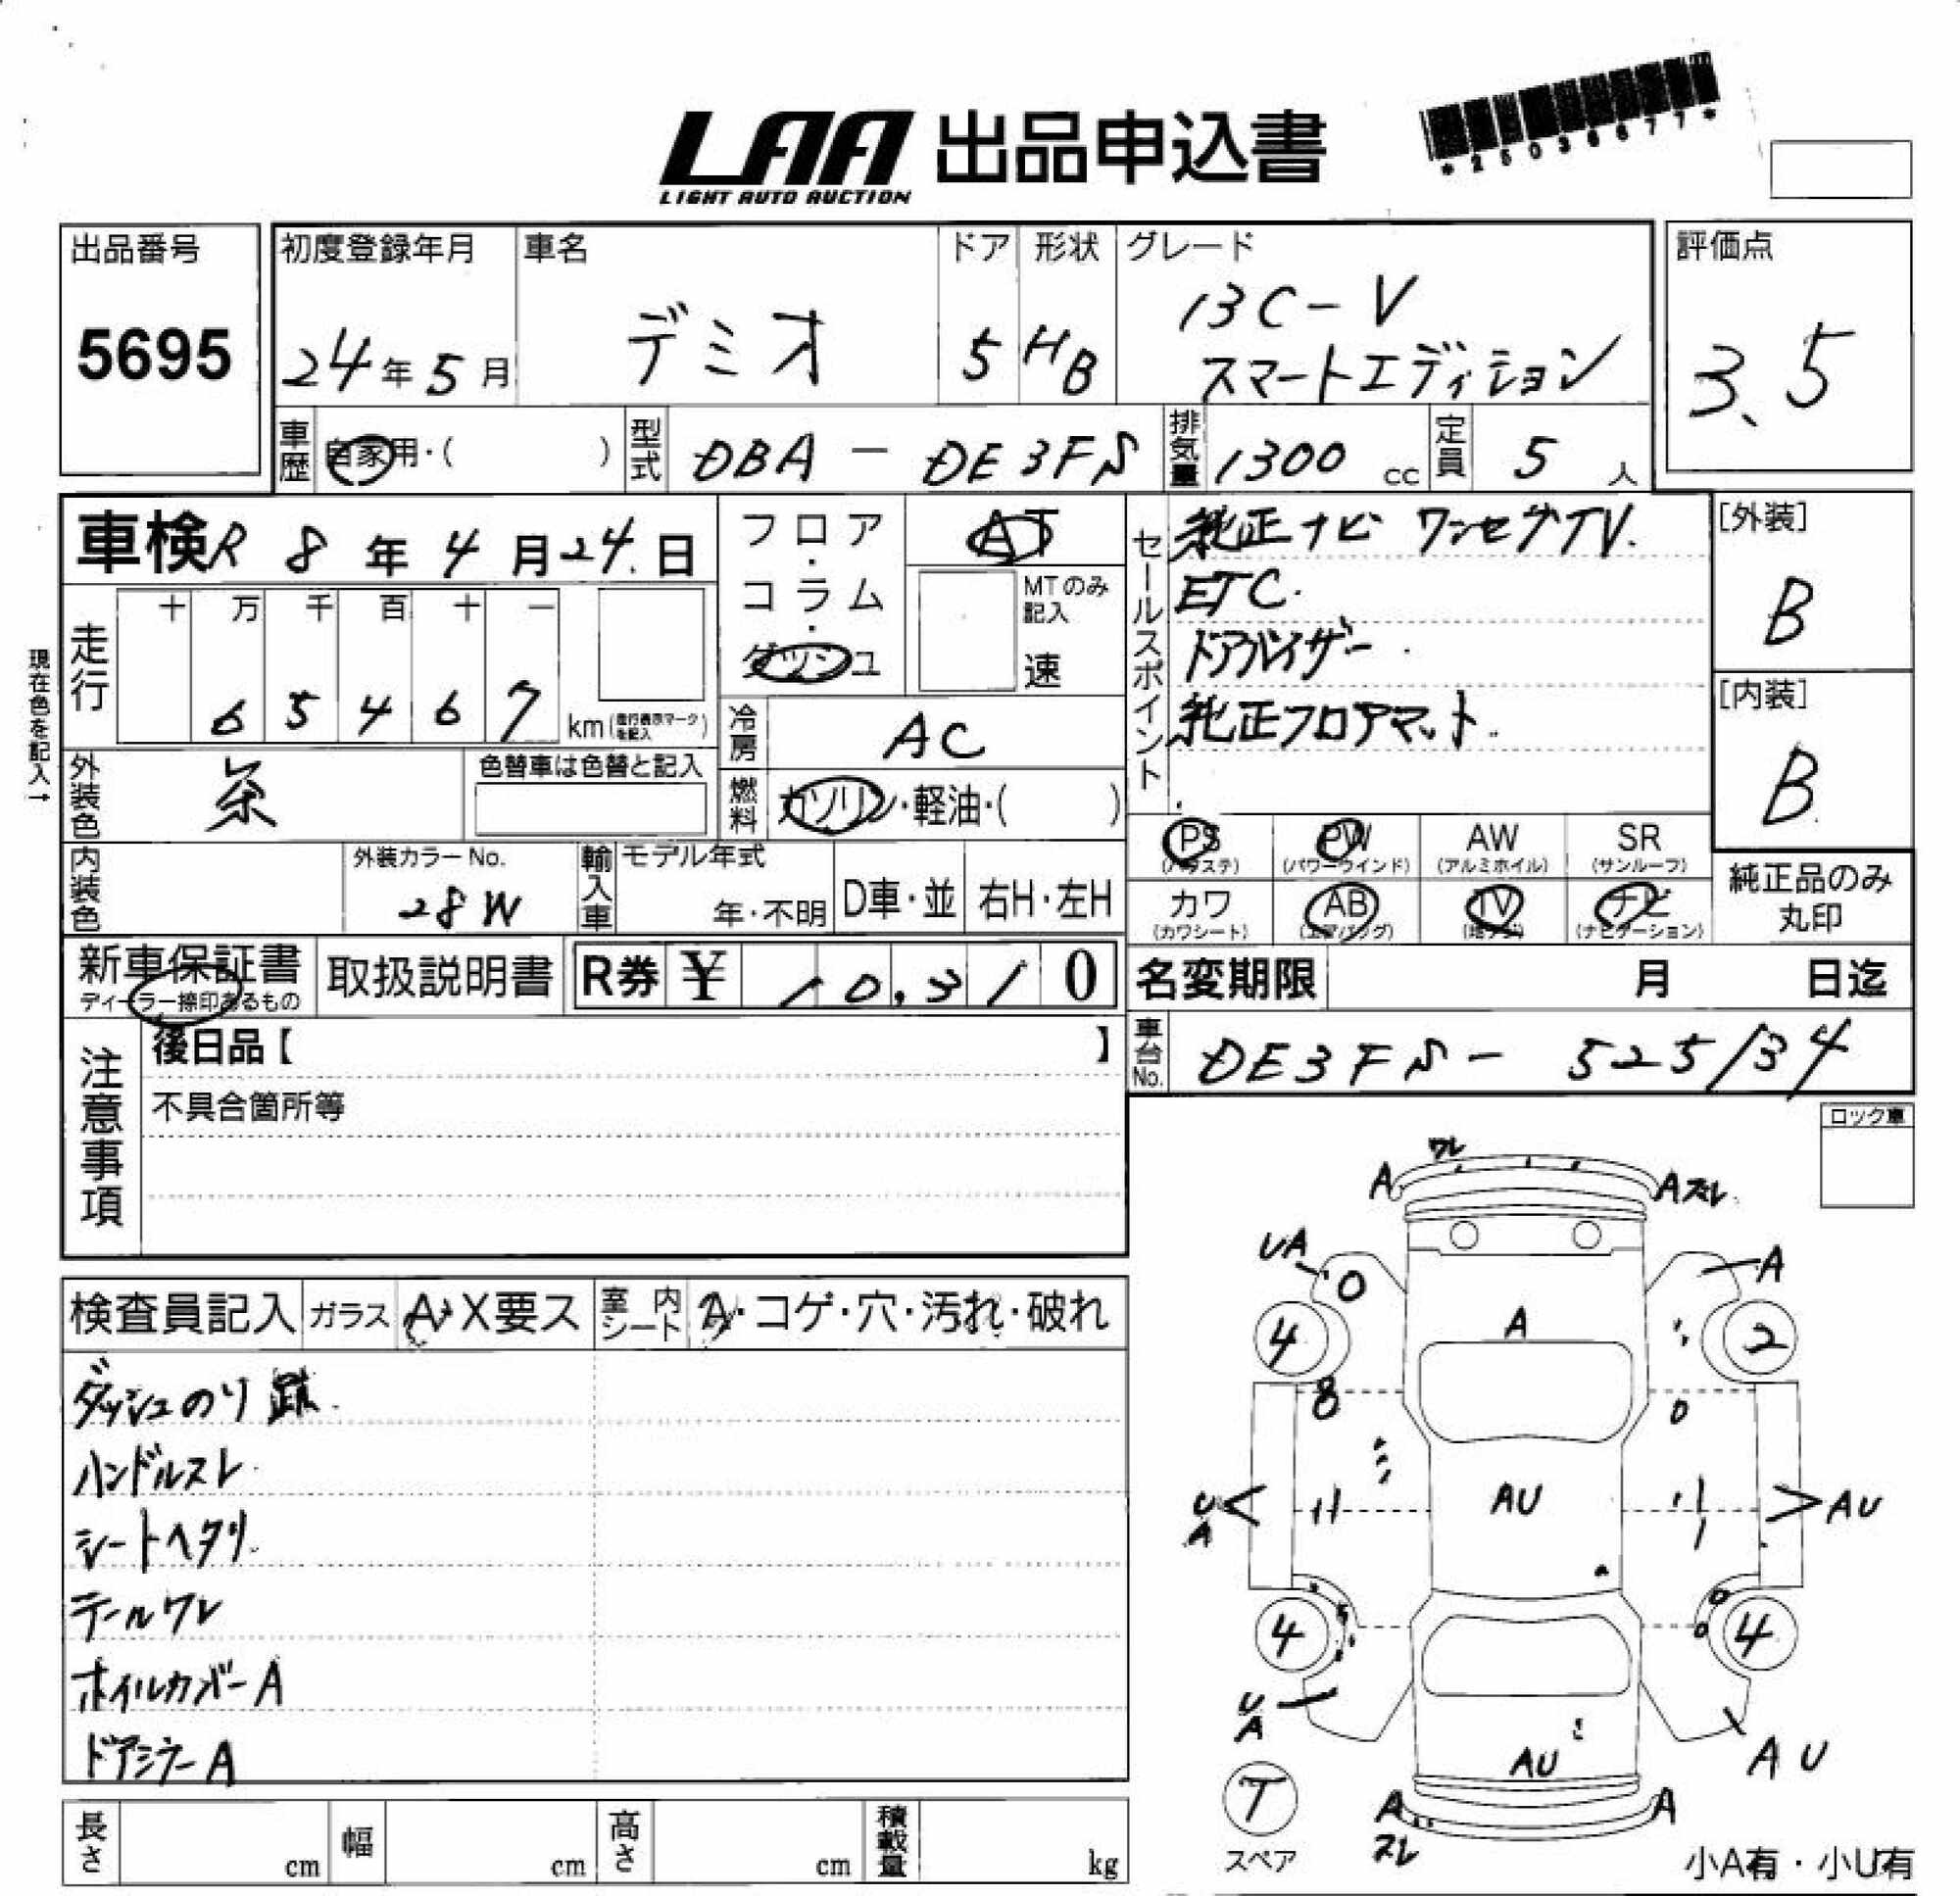 LAA 出品申込書
LIGHT AUTO AUCTION
*25038677*
出品番号
5695
初度登録年月
24年5月
車名
デミオ
ドア
5
形状
HB
グレード
13C-V
スマートエディション
評価点
3.5
車歴 自家用・( )
型式 DBA-DE3FS
排気量 1300 cc
定員 5 人
車検 R 8 年 4 月 24 日
走行
十 万 千 百 十 一
6 5 4 6 7 km(走行表示マークを記入)
現在色を記入→
フロア・コラム・ダッシュ
AT
MTのみ記入
速
冷房 AC
燃料 ガソリン・軽油・( )
外装色 茶
色替車は色替と記入
内装色
外装カラーNo.
28W
輸入車
モデル年式
年・不明
D車・並
右H・左H
セールスポイント
純正ナビ ワンセグTV.
ETC.
ドアバイザー.
純正フロアマット.
[外装]
B
[内装]
B
PS (パワステ)
PW (パワーウインド)
AW (アルミホイル)
SR (サンルーフ)
カワ (カワシート)
AB (エアバッグ)
TV (地デジ)
ナビ (ナビゲーション)
純正品のみ
丸印
新車保証書
ディーラー捺印あるもの
取扱説明書
R券 ¥ 10,310
名変期限 月 日迄
車台No. DE3FS-525134
注意事項
後日品【 】
不具合箇所等
ロック車
検査員記入
ガラス A・X要ス
室内シート A・コゲ・穴・汚れ・破れ
ダッシュのり跡.
ハンドルスレ.
シートヘタリ.
テールワレ
ホイルカバーA
ドアミラーA
ワレ
A
Aズレ.
UA
A
4
A
2
UA
AU
AU
4
4
UA
AU
AU
T
スペア
A
スレ
A
小A有・小U有
長さ cm
幅 cm
高さ cm
積載量 kg